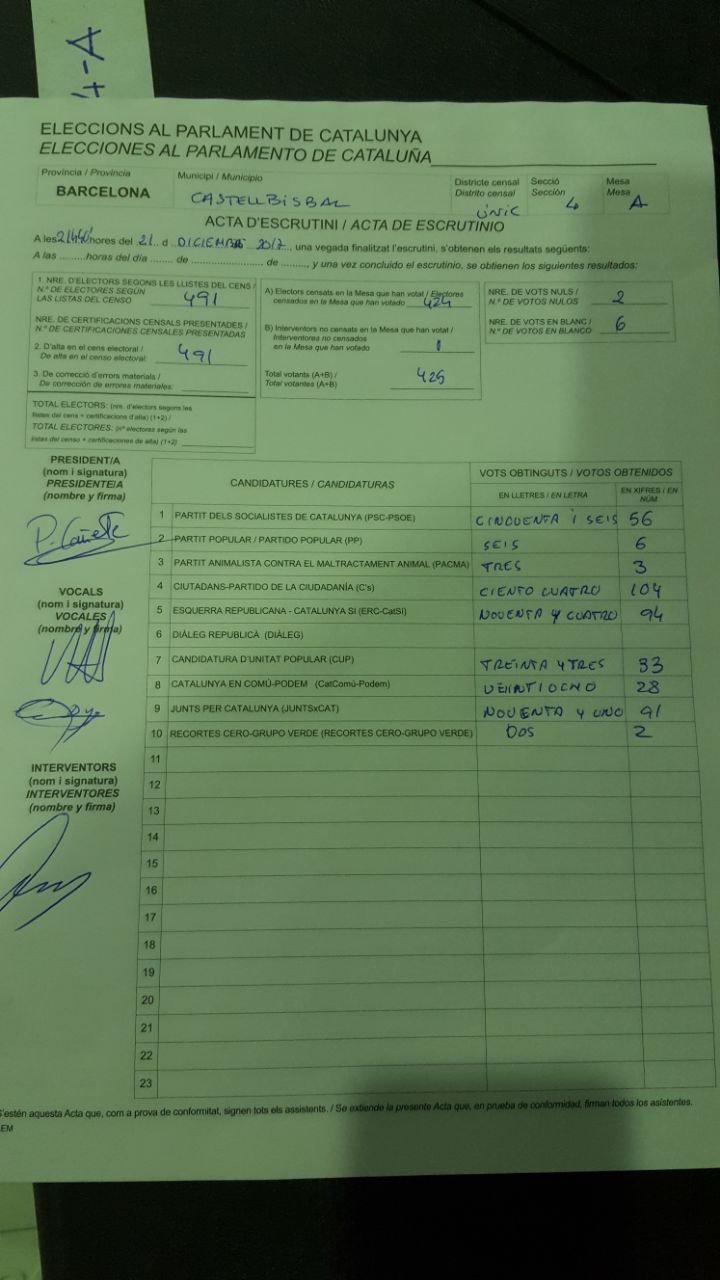 4-A
ELECCIONS AL PARLAMENT DE CATALUNYA
ELECCIONES AL PARLAMENTO DE CATALUÑA
Província / Provincia
BARCELONA
Municipi / Municipio
CASTELLBISBAL
Districte censal
Distrito censal
ÚNIC
Secció
Sección
4
Mesa
Mesa
A
ACTA D'ESCRUTINI / ACTA DE ESCRUTINIO
A les hores del 21 d DICIEMBRE 2017, una vegada finalitzat l'escrutini, s'obtenen els resultats següents:
A las ........horas del día ........ de ........................ de ........, y una vez concluido el escrutinio, se obtienen los siguientes resultados:
1. NRE. D'ELECTORS SEGONS LES LLISTES DEL CENS /
N.º DE ELECTORES SEGÚN
LAS LISTAS DEL CENSO 491
NRE. DE CERTIFICACIONS CENSALS PRESENTADES /
N.º DE CERTIFICACIONES CENSALES PRESENTADAS
2. D'alta en el cens electoral /
De alta en el censo electoral: 491
3. De correcció d'errors materials /
De corrección de errores materiales:
TOTAL ELECTORS: (nre. d'electors segons les
llistes del cens + certificacions d'alta) (1+2) /
TOTAL ELECTORES: (nº electores según las
listas del censo + certificaciones de alta) (1+2)
A) Electors censats en la Mesa que han votat / Electores
censados en la Mesa que han votado 424
B) Interventors no censats en la Mesa que han votat /
Interventores no censados
en la Mesa que han votado 1
Total votants (A+B) /
Total votantes (A+B) 425
NRE. DE VOTS NULS /
N.º DE VOTOS NULOS 2
NRE. DE VOTS EN BLANC /
N.º DE VOTOS EN BLANCO 6
PRESIDENT/A
(nom i signatura)
PRESIDENTE/A
(nombre y firma)
P. Cañete
VOCALS
(nom i signatura)
VOCALES
(nombre y firma)
INTERVENTORS
(nom i signatura)
INTERVENTORES
(nombre y firma)
CANDIDATURES / CANDIDATURAS
VOTS OBTINGUTS / VOTOS OBTENIDOS
EN LLETRES / EN LETRA
EN XIFRES / EN NÚM
1 PARTIT DELS SOCIALISTES DE CATALUNYA (PSC-PSOE) CINCUENTA i SEIS 56
2 PARTIT POPULAR / PARTIDO POPULAR (PP) SEIS 6
3 PARTIT ANIMALISTA CONTRA EL MALTRACTAMENT ANIMAL (PACMA) TRES 3
4 CIUTADANS-PARTIDO DE LA CIUDADANÍA (C's) CIENTO CUATRO 104
5 ESQUERRA REPUBLICANA - CATALUNYA SI (ERC-CatSI) NOVENTA Y CUATRO 94
6 DIÀLEG REPUBLICÀ (DIÀLEG)
7 CANDIDATURA D'UNITAT POPULAR (CUP) TREINTA Y TRES 33
8 CATALUNYA EN COMÚ-PODEM (CatComú-Podem) VEINTIOCHO 28
9 JUNTS PER CATALUNYA (JUNTSxCAT) NOVENTA Y UNO 91
10 RECORTES CERO-GRUPO VERDE (RECORTES CERO-GRUPO VERDE) DOS 2
11
12
13
14
15
16
17
18
19
20
21
22
23
S'estén aquesta Acta que, com a prova de conformitat, signen tots els assistents. / Se extiende la presente Acta que, en prueba de conformidad, firman todos los asistentes.
EM